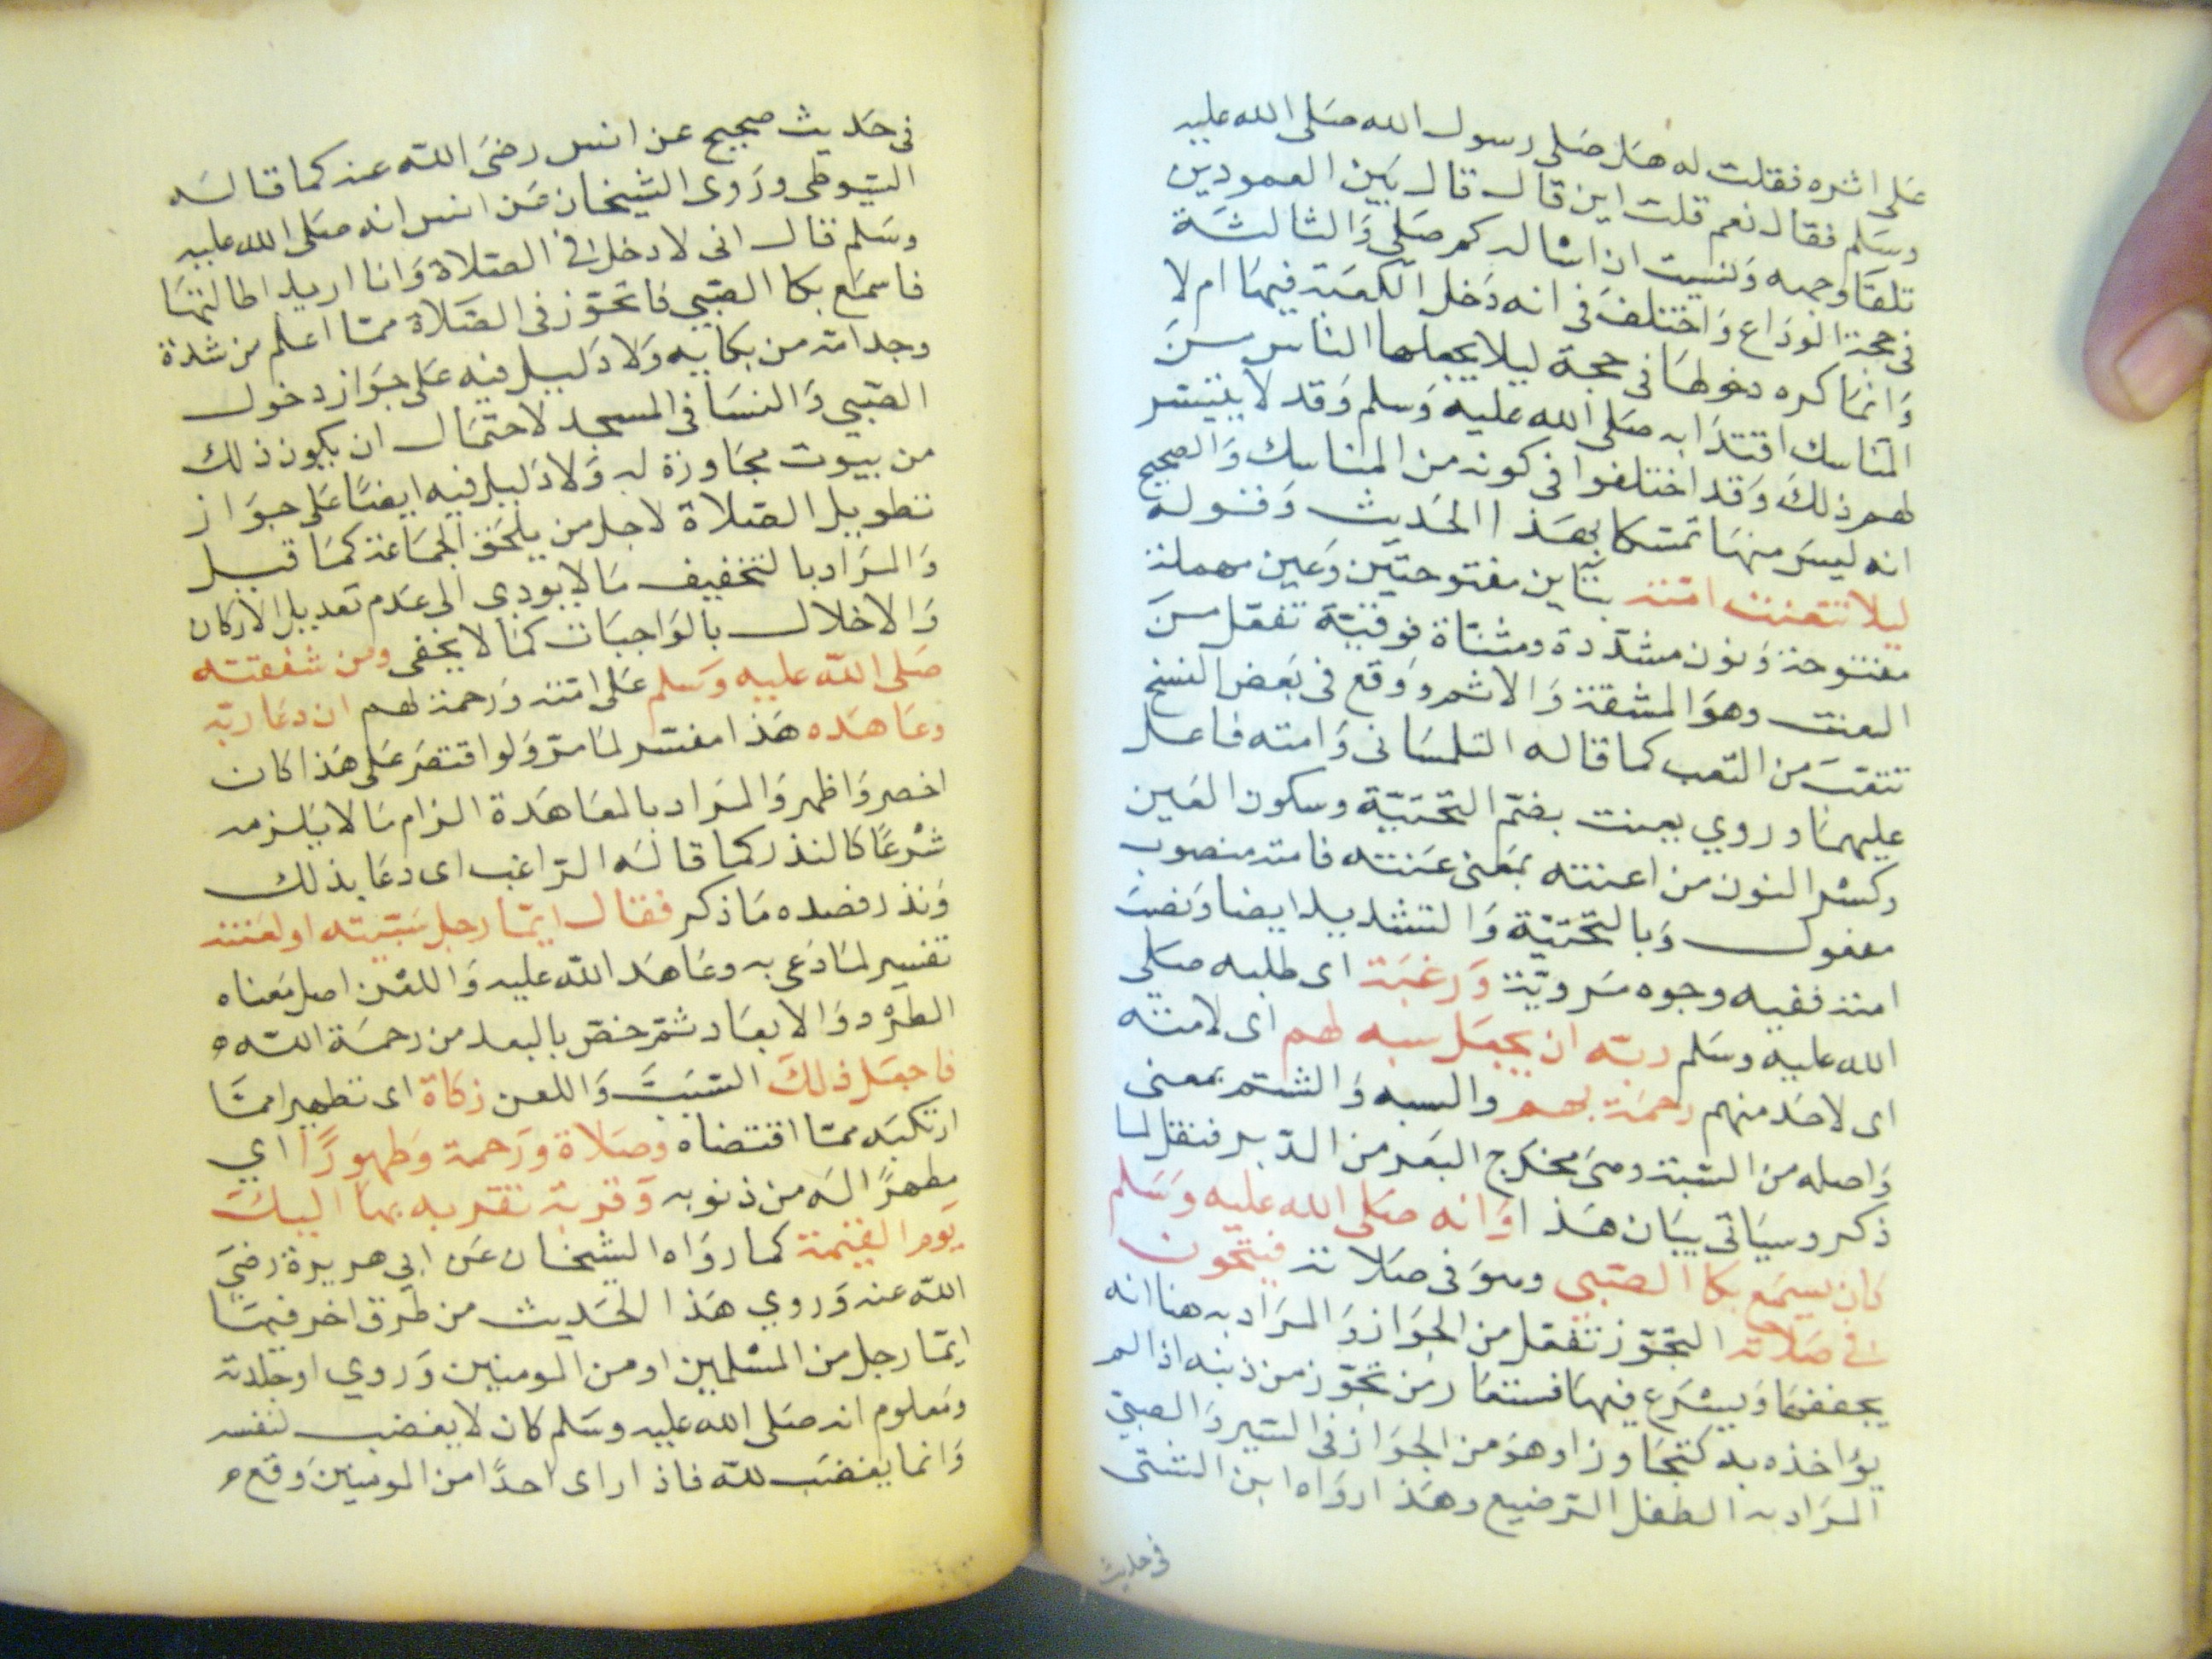 على اثره فقلت له هل صلى رسول الله صلى الله عليه
وسلم فقال نعم قلت اين قال قال بين العمودين
تلقا وجهه ونسيت ان اساله كم صلى والثالثة
في حجة الوداع واختلف في انه دخل الكعبة فيها ام لا
وانما كره دخولها في حجة ليلا يجعلها الناس من
المناسك اقتدا به صلى الله عليه وسلم وقد لا يتيسر
لهم ذلك وقد اختلفوا في كونه من المناسك والصحيح
انه ليس منها تمسكا بهذا الحديث وقوله
ليلا تتعنت امته بتاين مفتوحتين وعين مهملة
مفتوحة ونون مشددة ومثناة فوقية تفعل من
العنت وهو المشقة والاثم ووقع في بعض النسخ
تتعب من التعب كما قاله التلمساني وامته فاعل
عليهما وروي يعنت بضم التحتية وسكون العين
وكسر النون من اعنته بمعنى عنته فامته منصوب
مفعول وبالتحتية والتشديد ايضا ونصب
امته ففيه وجوه مروية ورغبة اى طلبه صلى
الله عليه وسلم ربه ان يجعل سبه لهم اى لامته
اى لاحد منهم رحمة بهم والسب والشتم بمعنى
واصله من السبة وهي مخرج البعر من الدبر فنقل لما
ذكر وسياتي بيان هذا وانه صلى الله عليه وسلم
كان يسمع بكا الصبي وهو في صلاته فيتجوز
في صلاته التجوز تفعل من الجواز والمراد به هنا انه
يخففها ويسرع فيها فستعار من تجوز من ذنبه اذا لم
يؤاخذه به كتجاوز او هو من الجواز في السير والصبي
المراد به الطفل الرضيع وهذا رواه ابن السني
في حديث
في حديث صحيح عن انس رضى الله عنه كما قاله
السيوطى وروى الشيخان عن انس انه صلى الله عليه
وسلم قال انى لادخل في الصلاة وانا اريد اطالتها
فاسمع بكا الصبي فاتجوز في الصلاة مما اعلم من شدة
وجد امه من بكايه ولا دليل فيه على جواز دخول
الصبي والنسا في المسجد لاحتمال ان يكون ذلك
من بيوت مجاورة له ولا دليل فيه ايضا على جواز
تطويل الصلاة لاجل من يلحق الجماعة كما قيل
والمراد بالتخفيف ما لا يودي الى عدم تعديل الاركان
والاخلال بالواجبات كما لا يخفى ومن شفقته
صلى الله عليه وسلم على امته ورحمة لهم ان دعا ربه
وعاهده هذا مفسر لما مر ولو اقتصر على هذا كان
اخصر واظهر والمراد بالمعاهدة الزام ما لا يلزمه
شرعا كالنذر كما قاله الراغب اى دعا بذلك
ونذر فصده ما ذكر فقال ايما رجل سببته او لعنته
تفسير لما دعى به وعاهد الله عليه واللعن اصل معناه
الطرد والابعاد ثم خص بالبعد من رحمة الله
فاجعل ذلك السب واللعن زكاة اى تطهيرا مما
ارتكبه مما اقتضاه وصلاة ورحمة وطهورا اي
مطهرا له من ذنوبه وقربة تقربه بها اليك
يوم القيمة كما رواه الشيخان عن ابي هريرة رضي
الله عنه وروي هذا الحديث من طرق اخر فيها
ايما رجل من المسلمين او من المومنين وروي او جلدته
ومعلوم انه صلى الله عليه وسلم كان لا يغضب لنفسه
وانما يغضب لله فاذا راى احدا من المومنين وقع